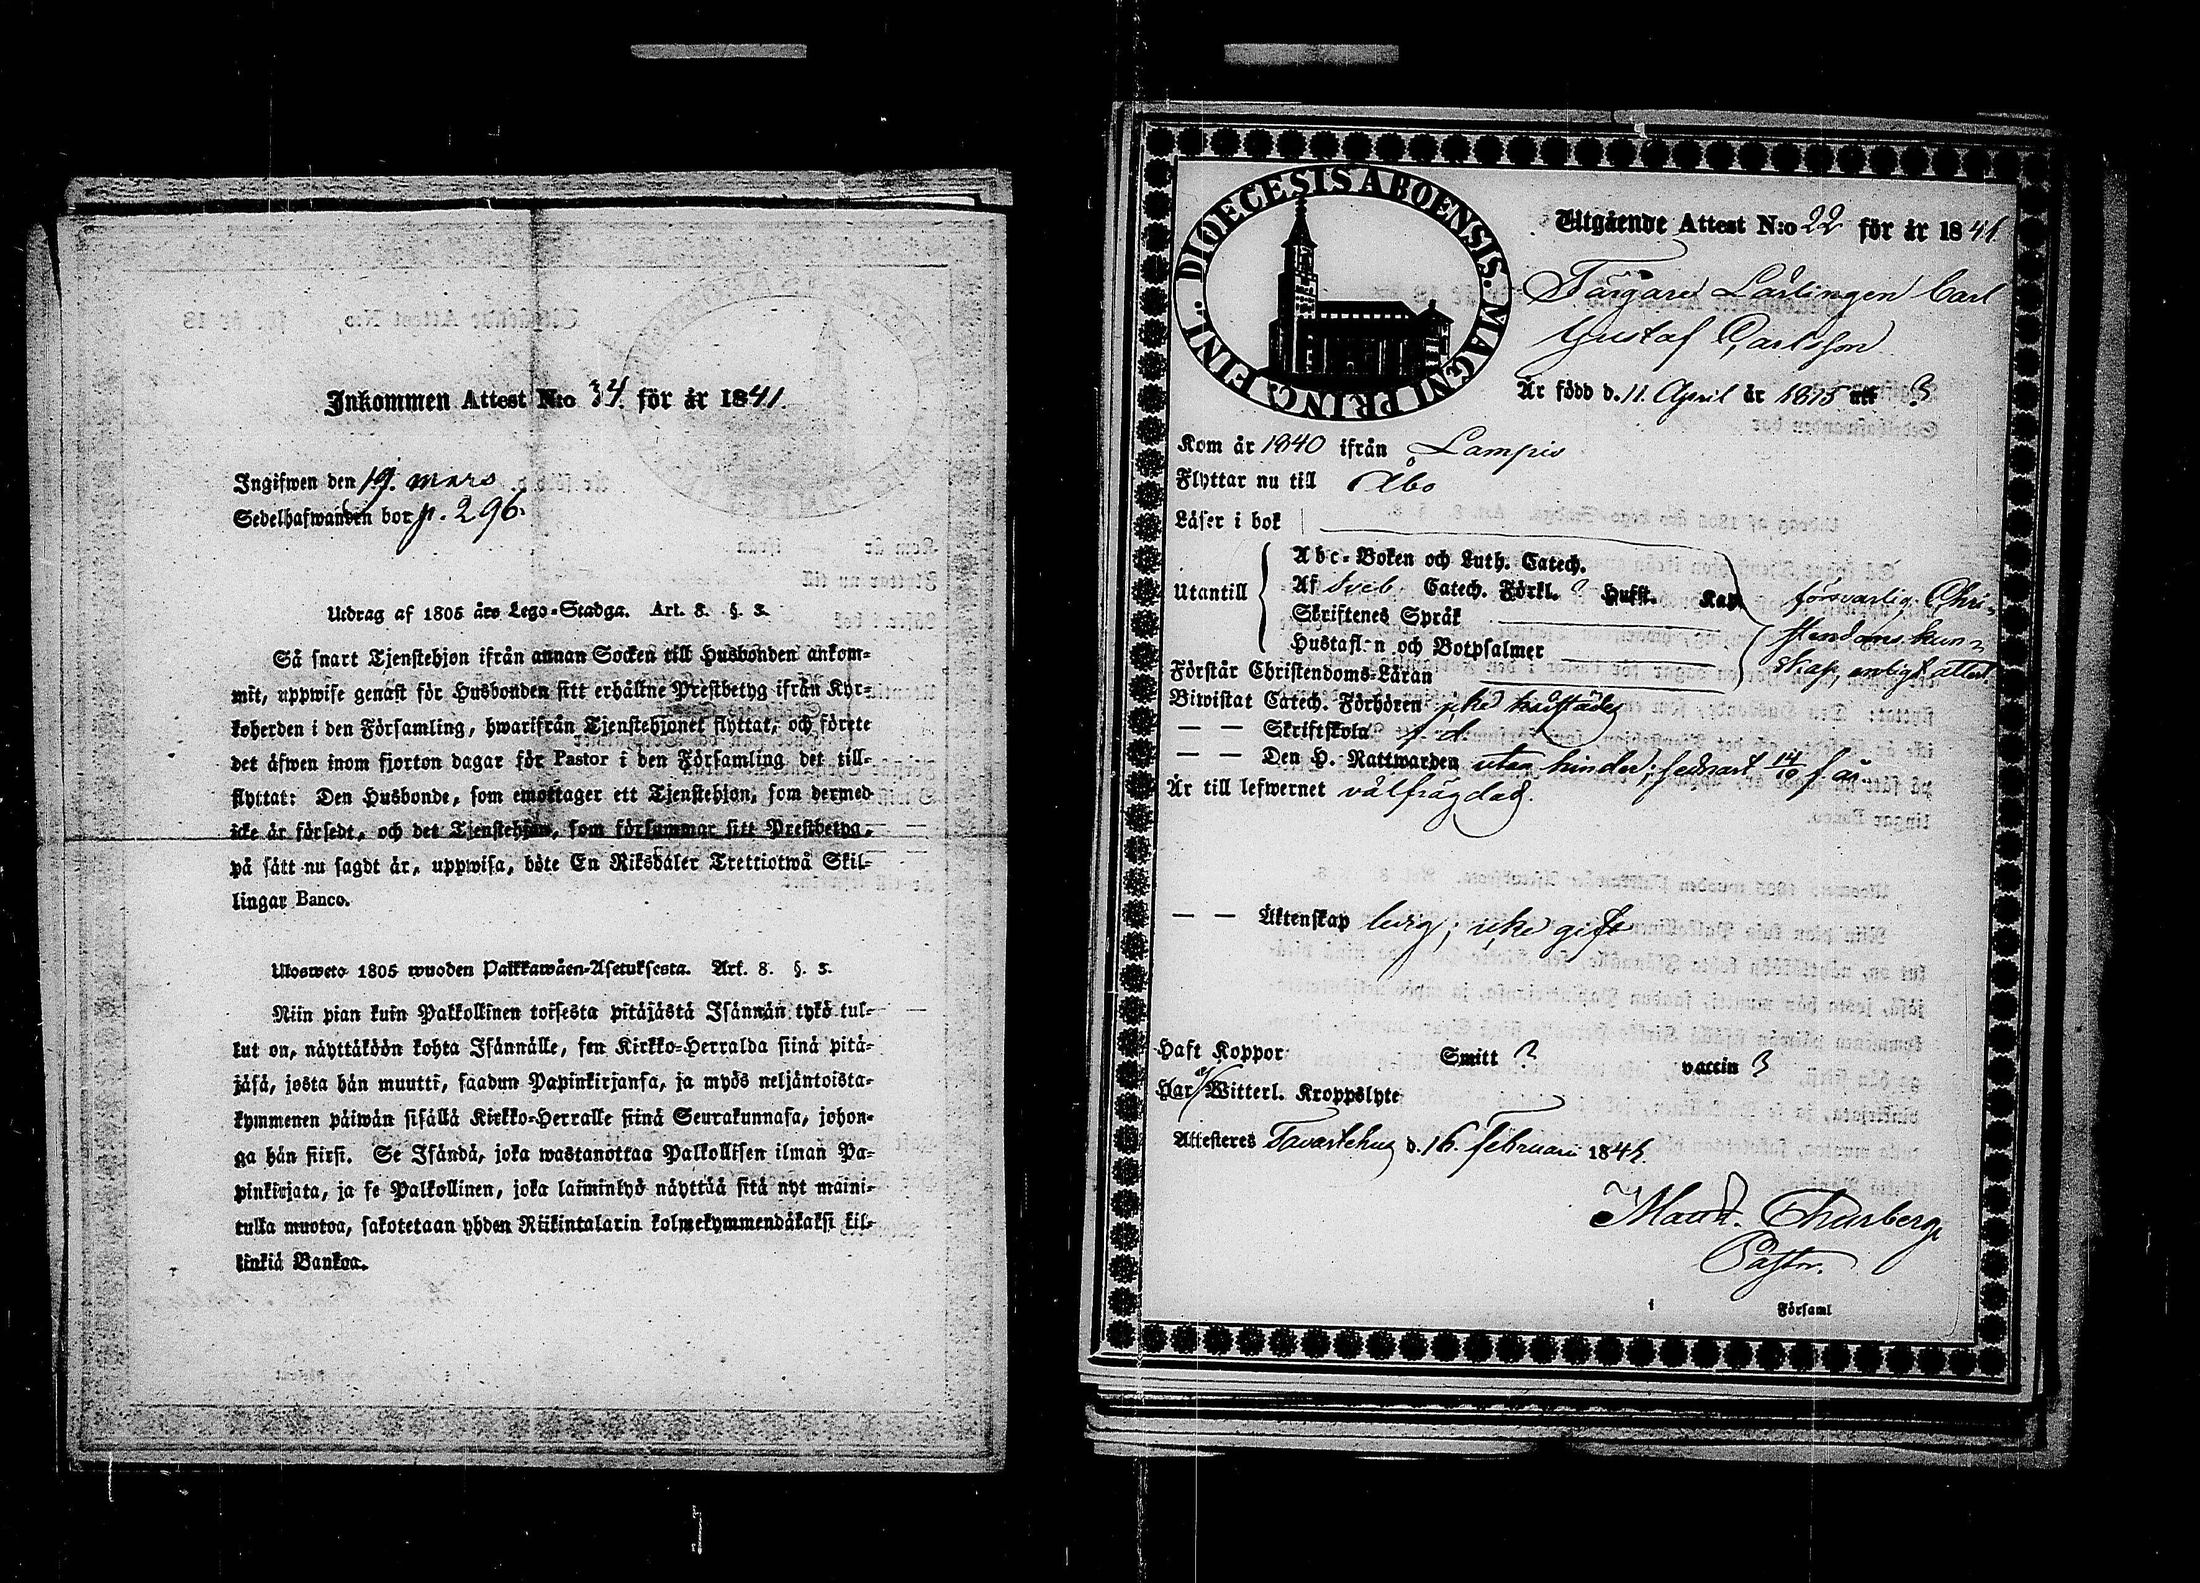 Inkommen Attest N:o 34. för år 1841.
Ingifwen den 19. mars
Sedelhafwanden bor p. 296.
Utdrag af 1805 års Lego-Stadga. Art. 8. §. 3.
Så snart Tjenstehjon ifrån annan Socken till Husbonden ankom-
mit, uppwise genast för Husbonden sitt erhållne Prestbetyg ifrån Kyr-
koherden i den Församling, hwarifrån Tjenstehjonet flyttat, och förete
det äfwen inom fjorton dagar för Pastor i den Församling det till-
flyttat: Den Husbonde, som emottager ett Tjenstehjon, som dermed
icke är försedt, och det Tjenstehjon, som försummar sitt Prestbetyg,
på sätt nu sagdt är, uppwisa, böte En Riksdaler Trettiotwå Skil-
lingar Banco.
Ulosweto 1805 wuoden Palkkawäen-Asetuksesta. Art. 8. §. 3.
Niin pian kuin Palkollinen toisesta pitäjästä Isännän tykö tul-
kut on, näyttäköön kohta Isännälle, sen Kirkko-Herralda siinä pitä-
jäsä, josta hän muutti, saadun Papinkirjansa, ja myös neljäntoista-
kymmenen päiwän sisällä Kirkko-Herralle siinä Seurakunnasa, johon-
ga hän siirsi. Se Isändä, joka wastanottaa Palkollisen ilman Pa-
pinkirjata, ja se Palkollinen, joka laiminlyö näyttää sitä nyt maini-
tulla muotoa, sakotetaan yhden Riikintalarin kolmekymmendäkaksi kil-
linkiä Bankoa.
DIOECESIS ABOENSIS. MAGNI PRINC. FINL.
Utgående Attest N:o 22 för år 1841.
Färgare Lärlingen Carl
Gustaf Carlsson
Är född d. 11. April år 1815 uti ?
Kom år 1840 ifrån Lampis
Flyttar nu till Åbo
Läser i bok
Abc-Boken och Luth. Catech.
Utantill Af Sveb. Catech. Förkl. ? Husft. Kap. försvarlig Chri-
Skriftenes Språk stendoms kun-
Hustafl:n och Botpsalmer skap, enligt attest.
Förstår Christendoms-Läran
Biwistat Catech. Förhören icke
— — Skriftskola d:
— — Den H. Nattwarden utan hinder; sednast 14/10 f. år
Är till lefwernet välfrägdad.
— — Äktenskap ledig; icke gift
Haft Koppor Smitt ? vaccin ?
Har ej Witterl. Kroppslyte
Attesteres Tavastehus d. 16. Februari 1841.
Thurberg
Pastor.
i Församl